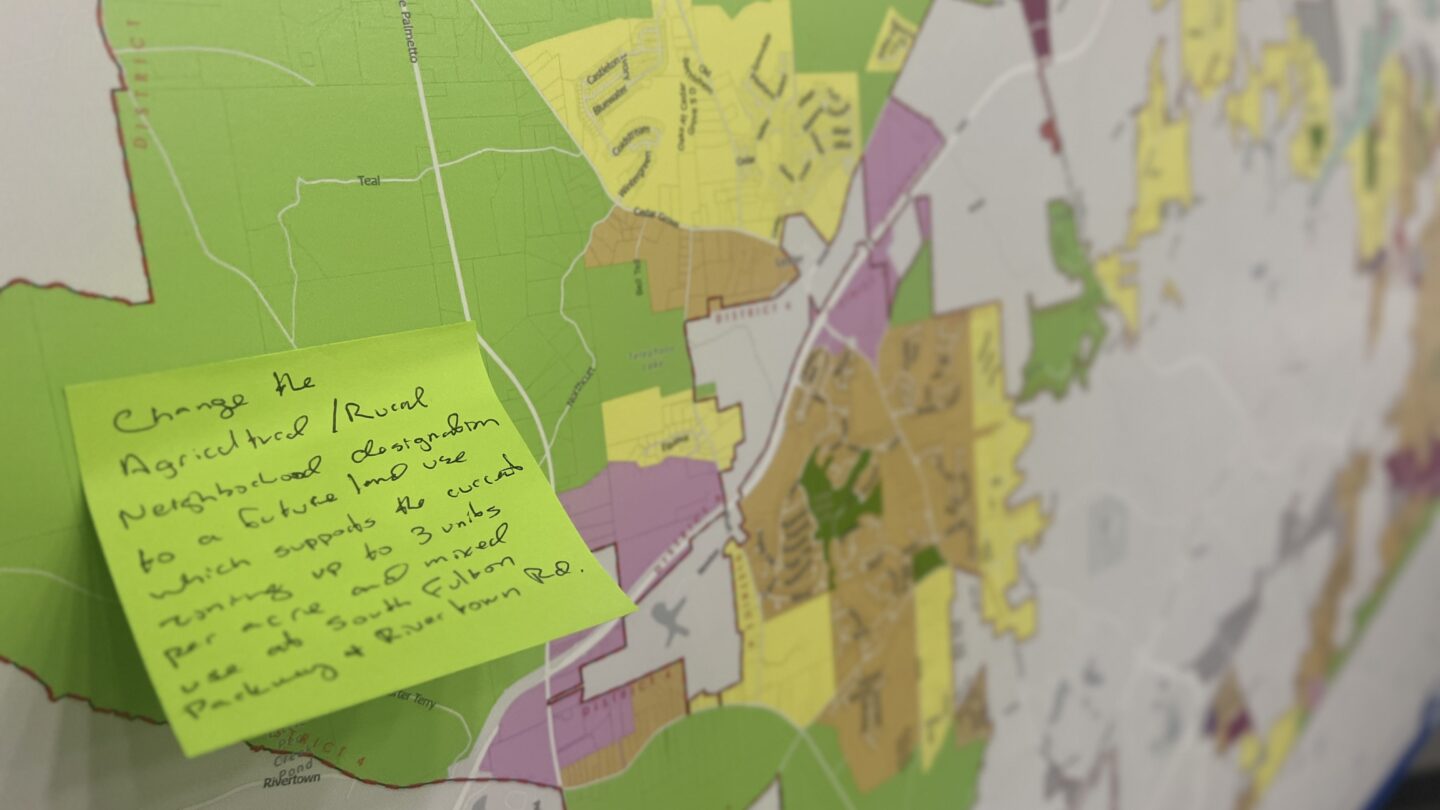 DISTRICT
e Palmetto
Teal
Castleton
Bluewater
Cedar Grove
Wintergreen
DISTRICT 4
Northcutt
Change the
Agricultural /Rural
Neighborhood designation
to a future land use
which supports the current
zoning up to 3 units
per acre and mixed
use at South Fulton
Parkway & Rivertown Rd.
DISTRICT 4
ter Terry
TRICT 4
Pond
Rivertown